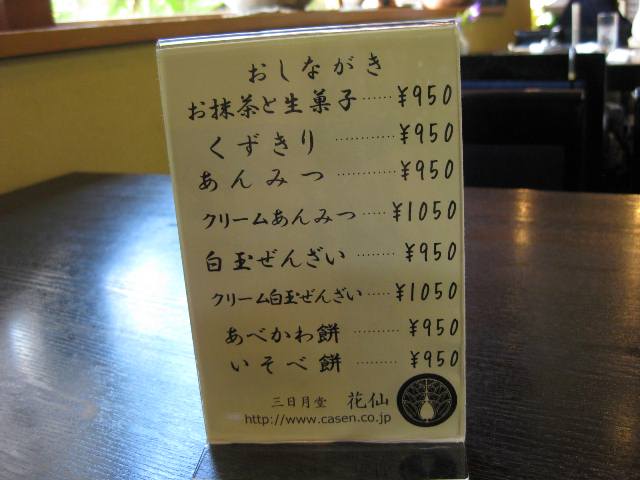 おしながき
お抹茶と生菓子……¥950
くずきり ………¥950
あんみつ ………¥950
クリームあんみつ……¥1050
白玉ぜんざい………¥950
クリーム白玉ぜんざい……¥1050
あべかわ餅………¥950
いそべ餅………¥950
三日月堂 花仙
http://www.casen.co.jp